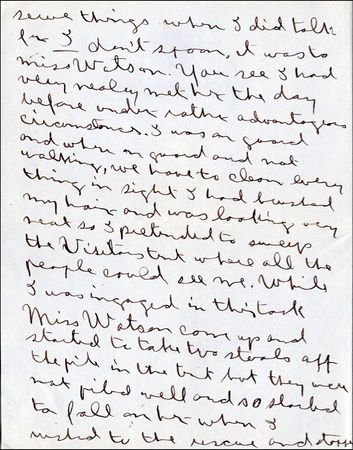 serve things when I did talk
for I don't spoon, it was to
Miss Watson. You see I had
very nearly met her the day
before under rather advantageous
circumstance. I was on guard
and when on guard and not
walking, we have to clean every
thing in sight I had brushed
my hair and was looking very
neat so I pretended to sweep
the Visitors tent where all the
people could see me. While
I was ingaged in this task
Miss Watson come up and
started to take two stools off
the pile in the tent but they were
not piled well and so started
to fall on her when I
rushed to the rescue and stopped